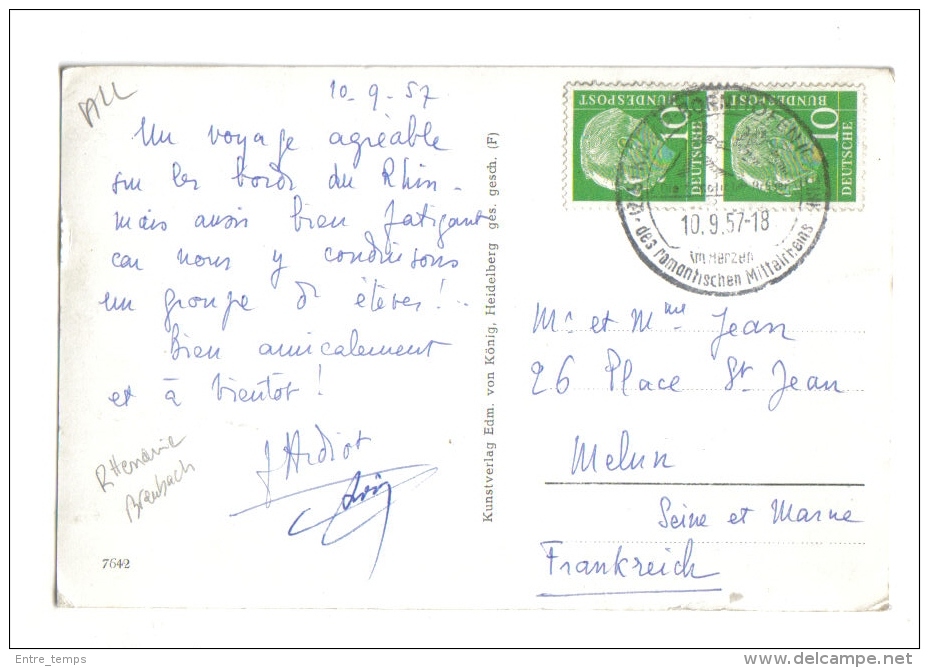 ALL
10-9-57
Un voyage agréable
sur les bords du Rhin -
mais aussi bien fatigant
car nous y conduisons
un groupe d'élèves!..
Bien amicalement
et à bientôt!
Rhenanie
Braubach
7642
Kunstverlag Edm. von König, Heidelberg ges. gesch. (F)
10 DEUTSCHE BUNDESPOST
10 DEUTSCHE BUNDESPOST
10.9.57-18
im Herzen
des romantischen Mittelrheins
Mr et Mme Jean
26 Place St Jean
Melun
Seine et Marne
Frankreich
Entre_temps
www.delcampe.net